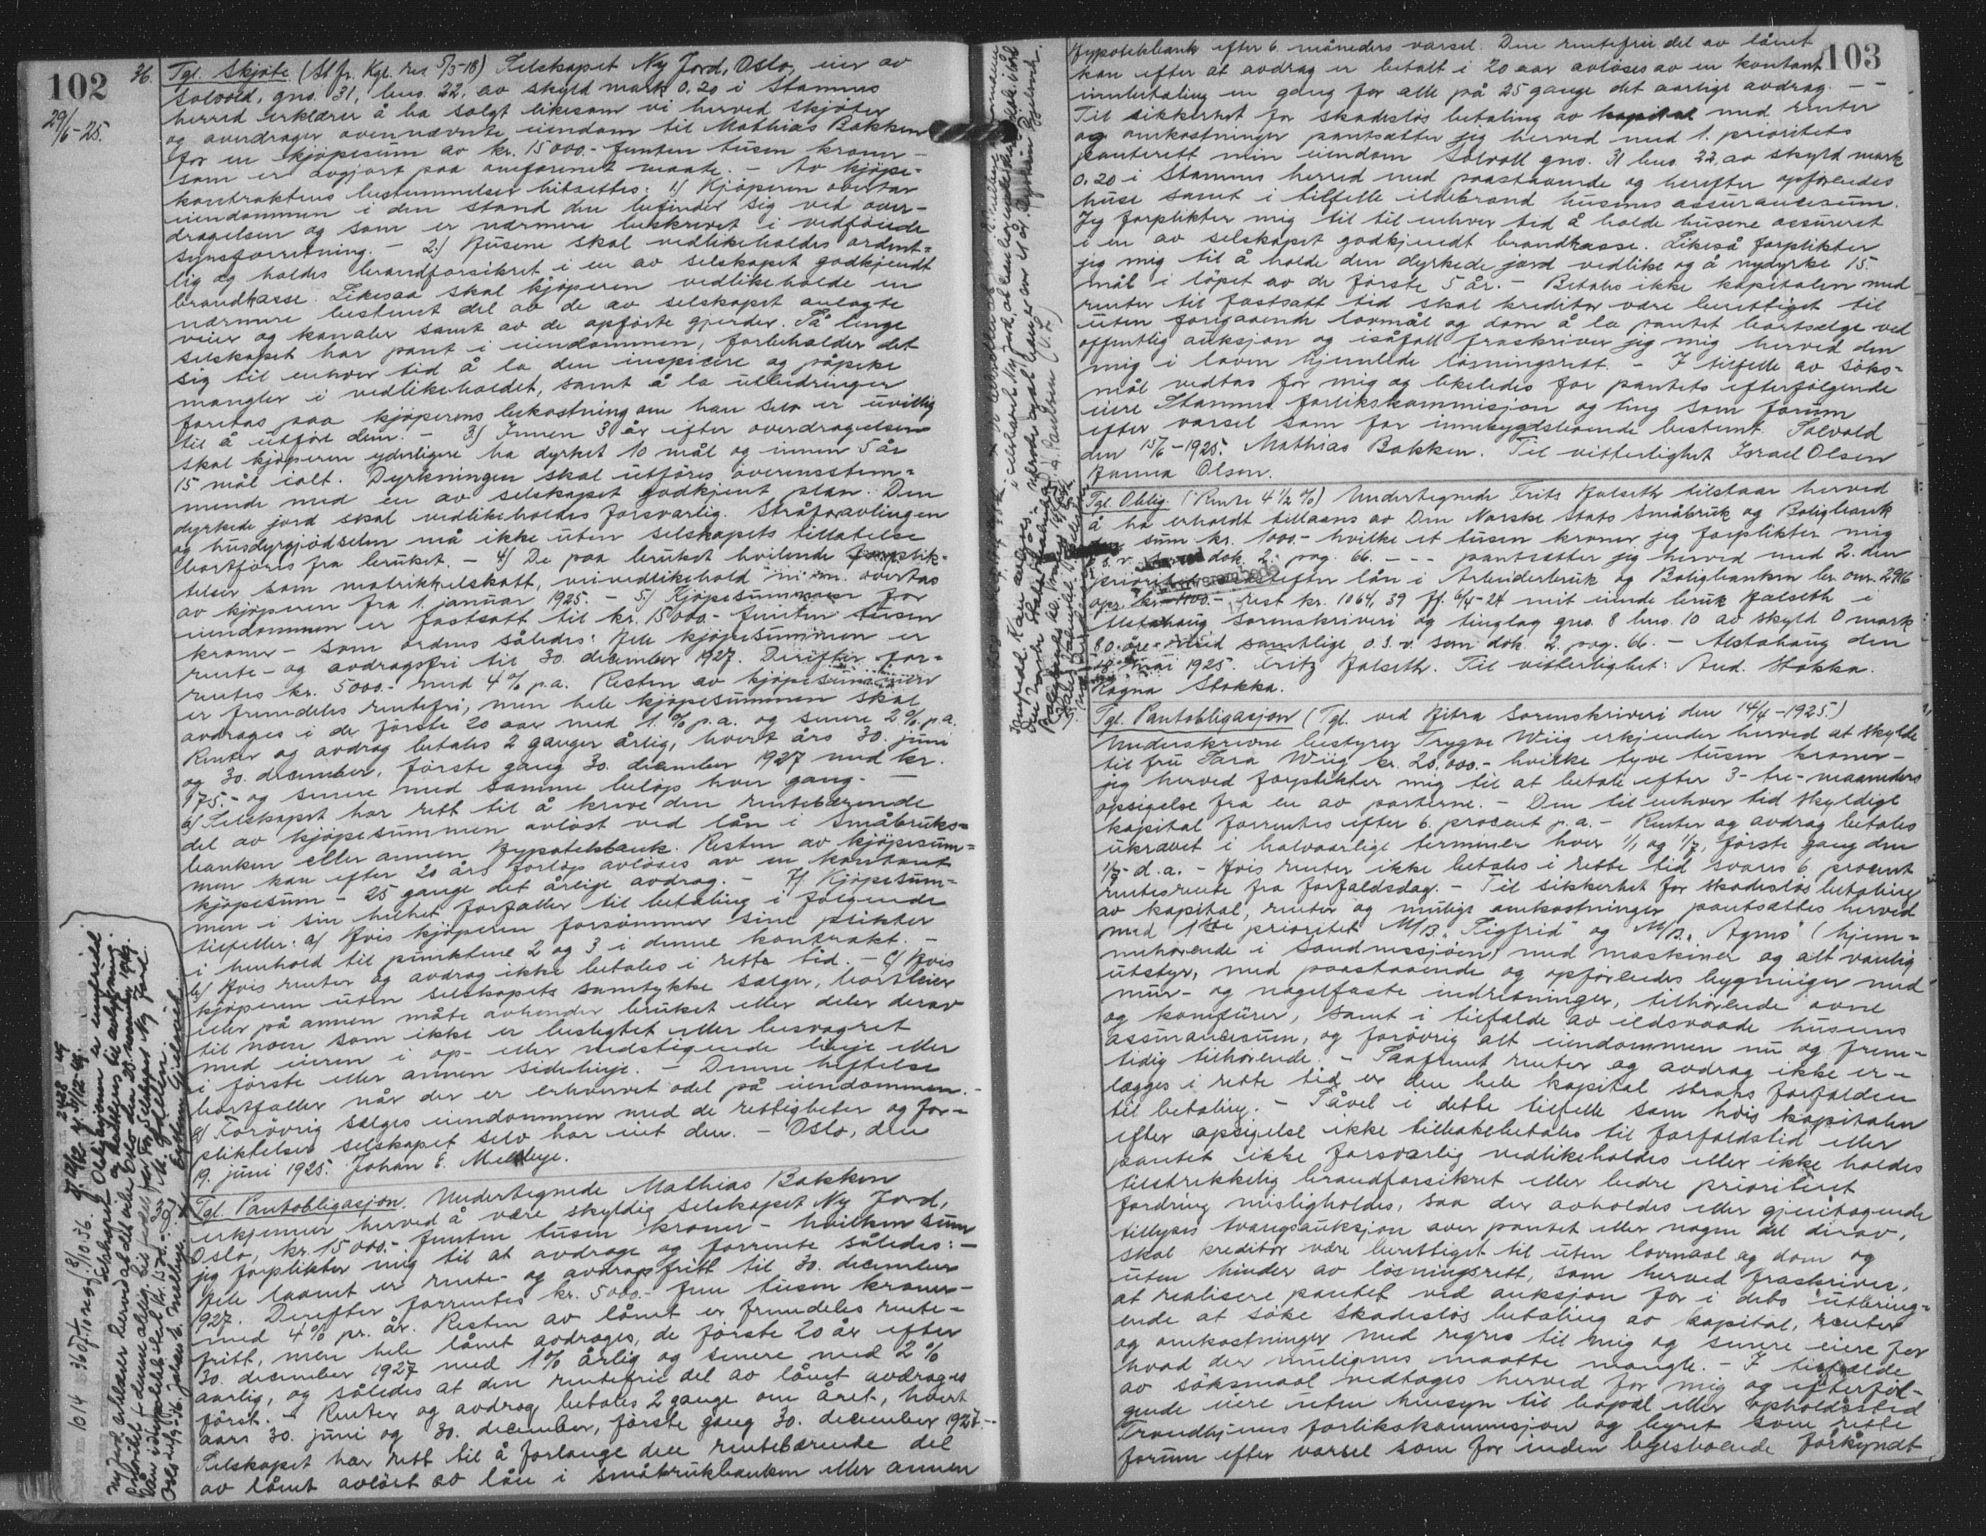 102
29/6-25.
36. Tgl. Skjøte (St.fr. Kgl. res 5/5-18) Selskapet Ny Jord, Oslo, eier av
Solvold, gno. 31, bno. 22, av skyld mark 0.20 i Stamnes
herred erklærer å ha solgt likesom vi herved skjøter
og overdrager ovennævnte eiendom til Mathias Bakken
for en kjøpesum av kr. 15000.- femten tusen kroner -
som er avgjort paa omforenet maate. - Av kjøpe-
kontraktens bestemmelser hitsettes: 1) Kjøperen overtar
eiendommen i den stand den befinder sig ved over-
dragelsen og som er nærmere beskrevet i vedføiede
synsforretning. - 2) Husene skal vedlikeholdes ordent-
lig og holdes brandforsikret i en av selskapet godkjendt
brandkasse. Likesaa skal kjøperen vedlikeholde en
nærmere bestemt del av de av selskapet anlagte
veier og kanaler samt av de opførte gjerder. Så lenge
selskapet har pant i eiendommen, forbeholder det
sig til enhver tid å la den inspicere og påpeke
mangler i vedlikeholdet, samt å la utbedringer
foretas paa kjøperens bekostning om han selv er uvillig
til å utføre dem. - 3) Innen 3 år efter overdragelsen
skal kjøperen yderligere ha dyrket 10 mål og innen 5 år
15 mål ialt. Dyrkningen skal utføres overensstem-
mende med en av selskapet godkjent plan. Den
dyrkede jord skal vedlikeholdes forsvarlig. Stråforavlingen
og husdyrgjødselen må ikke uten selskapets tillatelse
bortføres fra bruket. - 4) De paa bruket hvilende forplik-
telser som matrikkelskatt, veivedlikehold m.m. overtas
av kjøperen fra 1. januar 1925. - 5) Kjøpesummen for
eiendommen er fastsatt til kr. 15000.- femten tusen
kroner - som ordnes således: Hele kjøpesummen er
rente- og avdragsfri til 30. december 1927. Derefter for-
rentes kr. 5000.- med 4% p.a. Resten av kjøpesummen
er fremdeles rentefri, men hele kjøpesummen skal
avdrages i de første 20 aar med 1% p.a. og senere 2% p.a.
Renter og avdrag betales 2 ganger årlig, hvert års 30. juni
og 30. december, første gang 30. december 1927 med kr.
175.- og senere med samme beløp hver gang. -
6) Selskapet har rett til å kreve den rentebærende
del av kjøpesummen avløst ved lån i Småbruks-
banken eller annen Hypotekbank. Resten av kjøpesum-
men kan efter 20 års forløp avløses av en kontant
kjøpesum - 25 gange det årlige avdrag. - 7) Kjøpesum-
men i sin helhet forfaller til betaling i følgende
tilfeller: a) Hvis kjøperen forsømmer sine plikter
i henhold til punktene 2 og 3 i denne kontrakt. -
b) Hvis renter og avdrag ikke betales i rette tid. - c) Hvis
kjøperen uten selskapets samtykke sælger, bortleier
eller på annen måte avhender bruket eller deler derav
til noen som ikke er beslegtet eller besvogret
med eieren i op- eller nedstigende linje eller
i første eller annen sidelinje. - Denne heftelse
bortfaller når der er erhvervet odel på eiendommen. -
8) Forøvrig sælges eiendommen med de rettigheter og for-
pliktelser selskapet selv har eiet den. - Oslo, den
19. juni 1925. Johan E. Mellbye.
Tgl. Pantobligasjon. Undertegnede Mathias Bakken
erkjenner herved å være skyldig selskapet Ny Jord,
Oslo, kr. 15000.- femten tusen kroner - hvilken sum
jeg forplikter mig til at avdrage og forrente således: -
Hele laanet er rente- og avdragsfritt til 30. december
1927. Derefter forrentes kr. 5000.- fem tusen kroner -
med 4% pr. år. Resten av lånet er fremdeles rente-
fritt, men hele lånet avdrages, de første 20 år efter
30. december 1927 med 1% årlig og senere med 2%
aarlig, og således at den rentefrie del av lånet avdrages
først. - Renter og avdrag betales 2 gange om året, hvert
aars 30. juni og 30. december, første gang 30. december 1927. -
Selskapet har rett til å forlange den rentebærende del
av lånet avløst av lån i Småbrukbanken eller annen
103
Hypotekbank efter 6 måneders varsel. Den rentefrie del av lånet
kan efter at avdrag er betalt i 20 aar avløses av en kontant
innbetaling en gang for alle på 25 gange det aarlige avdrag. - -
Til sikkerhet for skadesløs betaling av kapital med renter
og omkostninger pantsætter jeg herved med 1. prioritets
panterett min eiendom Solvoll gno. 31 bno. 22 av skyld mark
0.20 i Stamnes herred med paastaaende og herefter opførendes
huse samt i tilfelle ildebrand husenes assurancesum.
Jeg forplikter mig til til enhver tid å holde husene assureret
i en av selskapet godkjendt brandkasse. Likeså forplikter
jeg mig til å holde den dyrkede jord vedlike og å nydyrke 15
mål i løpet av de første 5 år. - Betales ikke kapitalen med
renter til fastsatt tid skal kreditor være berettiget til
uten foregaaende lovmål og dom å la pantet bortsælge ved
offentlig auksjon og isåfall fraskriver jeg mig herved den
mig i loven hjemlede løsningsrett. - I tilfelle av søks-
mål vedtas for mig og likeledes for pantets efterfølgende
eiere Stamnes forlikskommisjon og ting som forum
efter varsel som for innenbygdsboende bestemt. Solvold
den 15/6-1925. Mathias Bakken. Til vitterlighet Israel Olsen
Hanna Olsen.
Tgl. Oblig. (Rente 4 1/2 %) Undertegnede Frits Halseth tilstaar herved
å ha erholdt tillaans av Den Norske Stats Småbruk og Boligbank
sum kr. 1000.- hvilke et tusen kroner jeg forplikter mig
o.s.v. dok. 2. pag. 66. - - - pantsætter jeg herved med 2. den
prioritet efter lån i Arbeiderbruk og Boligbanken litr. nr. 2916
opr. kr. rest kr. 1064,39 pr. 6/4-24 mit eiende bruk Halseth i
Alstahaug Sorenskriveri og tinglag gno. 8 bno. 10 av skyld 0 mark
80 øre - med samtlige o.s.v. som dok. 2. pag. 66. - Alstahaug den
mai 1925. Fritz Halseth. Til vitterlighet: And. Stokka.
Ragna Stokka.
Tgl. Pantobligasjon (Tgl. ved Hitra Sorenskriveri den 14/4-1925.)
Underskrevne bestyrer Trygve Wiig erkjender herved at skylde
til fru Sara Wiig kr. 20,000.- hvilke tyve tusen kroner -
jeg herved forplikter mig til at betale efter 3- tre- maaneders
opsigelse fra en av parterne. - Den til enhver tid skyldige
kapital forrentes efter 6. procent p.a. - Renter og avdrag betales
ukrævet i halvaarlige terminer hver 1/1 og 1/7, første gang den
1/7- d.a. - Hvis renter ikke betales i rette tid svares 6 procent
rentesrente fra forfaldsdag. - Til sikkerhet for skadesløs betaling
av kapital, renter og mulige omkostninger pantsættes herved
med 1ste prioritet M/B. "Sigfrid" og M/B. "Agnes" (hjem-
mehørende i Sandnessjøen) med maskiner og alt vanlig
utstyr, med paastaaende og opførendes bygninger med
mur- og nagelfaste indretninger, tilhørende ovne
og komfürer, samt i tilfælde av ildsvaade husenes
assurancesum, og forøvrig alt eiendommen nu og frem-
tidig tilhørende. - Saafremt renter og avdrag ikke er-
lægges i rette tid er den hele kapital straks forfalden
til betaling. - Såvel i dette tilfelle som hvis kapitalen
efter opsigelse ikke tilbakebetales til forfaldstid eller
pantet ikke forsvarlig vedlikeholdes eller ikke holdes
tilstrekkelig brandforsikret eller bedre prioriteret
fordring misligholdes, saa der avholdes eller gjentagende
tillyses tvangsauksjon over pantet eller nogen del derav,
skal kreditor være berettiget til uten lovmaal og dom og
uten hinder av løsningsrett, som herved fraskrives,
at realisere pantet ved auksjon for i dets utbring-
ende at søke skadesløs betaling av kapital, renter
og omkostninger med regres til mig og senere eiere for
hvad der muligens maatte mangle. - I tilfælde
av søksmaal vedtages herved for mig og efterføl-
gende eiere uten hensyn til bopæl eller opholdssted
Trondhjems forlikskommisjon og byret som rette
forum efter varsel som for inden byesboende forkyndt